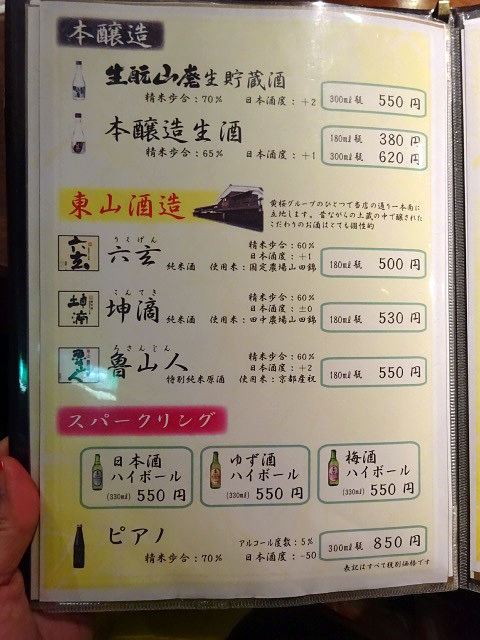 本醸造
生酛山廃生貯蔵酒
精米歩合：70％ 日本酒度：+2
300㎖瓶 550円
本醸造生酒
精米歩合：65％ 日本酒度：+1
180㎖瓶 380円
300㎖瓶 620円
東山酒造
黄桜グループのひとつで当店の通り一本南に
立地します。昔ながらの土蔵の中で醸された
こだわりのお酒はとても個性的
六玄
ろくげん
六玄
純米酒
精米歩合：60％
日本酒度：+1
使用米：固定農場山田錦
180㎖瓶 500円
坤滴
こんてき
坤滴
純米酒
精米歩合：60％
日本酒度：±0
使用米：田中農場山田錦
180㎖瓶 530円
魯山人
ろさんじん
魯山人
特別純米原酒
精米歩合：60％
日本酒度：+2
使用米：京都産祝
180㎖瓶 550円
スパークリング
日本酒
ハイボール
(330㎖) 550円
ゆず酒
ハイボール
(330㎖) 550円
梅酒
ハイボール
(330㎖) 550円
ピアノ
精米歩合：70％
アルコール度数：5％
日本酒度：-50
300㎖瓶 850円
表記はすべて税別価格です